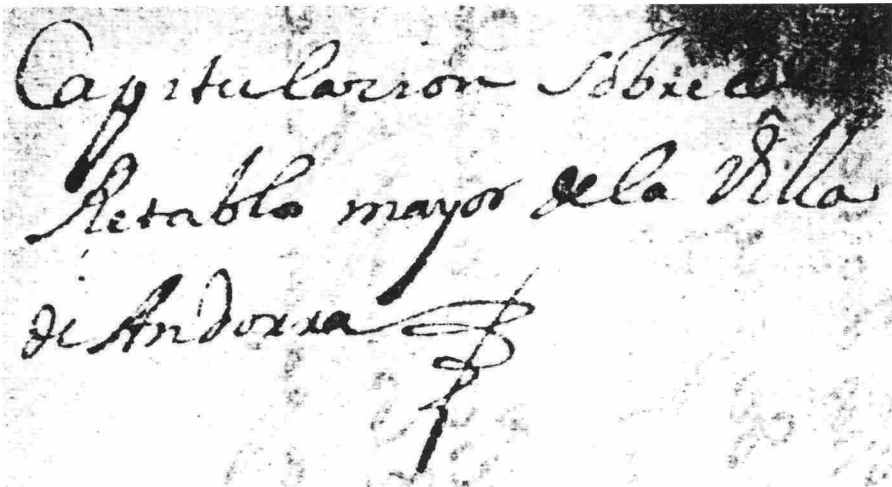 Capitulazion sobre el
Retablo mayor de la Villa
de Andorra